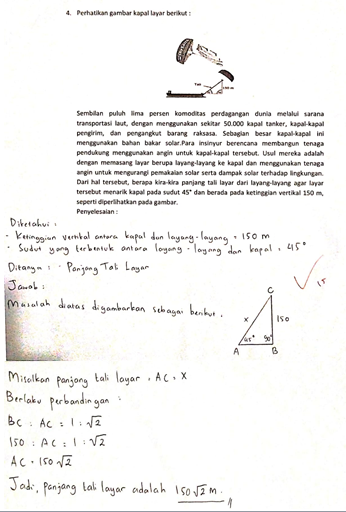 4. Perhatikan gambar kapal layar berikut :
Tali
150 m
45°
Sembilan puluh lima persen komoditas perdagangan dunia melalui sarana
transportasi laut, dengan menggunakan sekitar 50.000 kapal tanker, kapal-kapal
pengirim, dan pengangkut barang raksasa. Sebagian besar kapal-kapal ini
menggunakan bahan bakar solar.Para insinyur berencana membangun tenaga
pendukung menggunakan angin untuk kapal-kapal tersebut. Usul mereka adalah
dengan memasang layar berupa layang-layang ke kapal dan menggunakan tenaga
angin untuk mengurangi pemakaian solar serta dampak solar terhadap lingkungan.
Dari hal tersebut, berapa kira-kira panjang tali layar dari layang-layang agar layar
tersebut menarik kapal pada sudut 45° dan berada pada ketinggian vertikal 150 m,
seperti diperlihatkan pada gambar.
Penyelesaian :
Diketahui :
- Ketinggian vertikal antara kapal dan layang-layang = 150 m
- Sudut yang terbentuk antara layang-layang dan kapal = 45°
Ditanya : - Panjang Tali Layar
Jawab :
Masalah diatas digambarkan sebagai berikut.
15
C
X
150
45°
90°
A
B
Misalkan panjang tali layar, AC = X
Berlaku perbandingan :
BC : AC = 1 : √2
150 : AC = 1 : √2
AC = 150 √2
Jadi, panjang tali layar adalah 150√2 m.